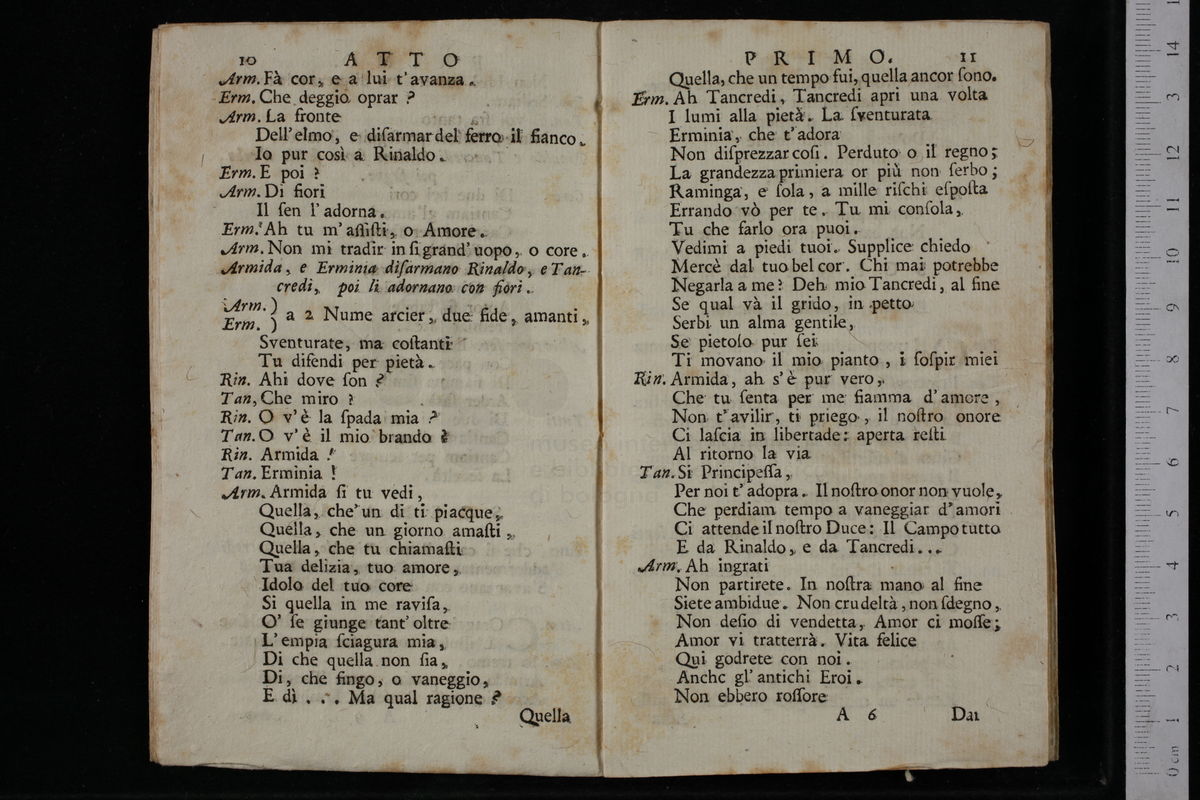 10 ATTO
Arm. Fà cor, e a lui t'avanza.
Erm. Che deggio oprar?
Arm. La fronte
Dell'elmo, e diſarmar del ferro il fianco.
Io pur così a Rinaldo.
Erm. E poi?
Arm. Di fiori
Il ſen l'adorna.
Erm. Ah tu m'aſſiſti, o Amore.
Arm. Non mi tradir in ſi grand'uopo, o core.
Armida, e Erminia diſarmano Rinaldo, e Tan-
credi, poi li adornano con fiori.
Arm. )
Erm. ) a 2 Nume arcier, due fide, amanti,
Sventurate, ma coſtanti
Tu difendi per pietà.
Rin. Ahi dove ſon?
Tan, Che miro?
Rin. O v'è la ſpada mia?
Tan. O v'è il mio brando?
Rin. Armida!
Tan. Erminia!
Arm. Armida ſi tu vedi,
Quella, che'un di ti piacque,
Quella, che un giorno amaſti,
Quella, che tu chiamaſti
Tua delizia, tuo amore,
Idolo del tuo core
Si quella in me raviſa,
O' ſe giunge tant'oltre
L'empia ſciagura mia,
Di che quella non ſia,
Di, che fingo, o vaneggio,
E dì . . . Ma qual ragione?
Quella
PRIMO. 11
Quella, che un tempo fui, quella ancor ſono.
Erm. Ah Tancredi, Tancredi apri una volta
I lumi alla pietà. La ſventurata
Erminia, che t'adora
Non diſprezzar coſi. Perduto o il regno;
La grandezza primiera or più non ſerbo;
Raminga, e ſola, a mille riſchi eſpoſta
Errando vò per te. Tu mi conſola,
Tu che farlo ora puoi.
Vedimi a piedi tuoi. Supplice chiedo
Mercè dal tuo bel cor. Chi mai potrebbe
Negarla a me? Deh mio Tancredi, al fine
Se qual và il grido, in petto
Serbi un alma gentile,
Se pietoſo pur ſei
Ti movano il mio pianto, i ſoſpir miei
Rin. Armida, ah s'è pur vero,
Che tu ſenta per me fiamma d'amore,
Non t'avilir, ti priego, il noſtro onore
Ci laſcia in libertade: aperta reſti
Al ritorno la via
Tan. Si Principeſſa,
Per noi t'adopra. Il noſtro onor non vuole,
Che perdiam tempo a vaneggiar d'amori
Ci attende il noſtro Duce: Il Campo tutto
E da Rinaldo, e da Tancredi...
Arm. Ah ingrati
Non partirete. In noſtra mano al fine
Siete ambidue. Non crudeltà, non ſdegno,
Non deſio di vendetta, Amor ci moſſe;
Amor vi tratterrà. Vita felice
Qui godrete con noi.
Anche gl'antichi Eroi.
Non ebbero roſſore
A 6 Dai